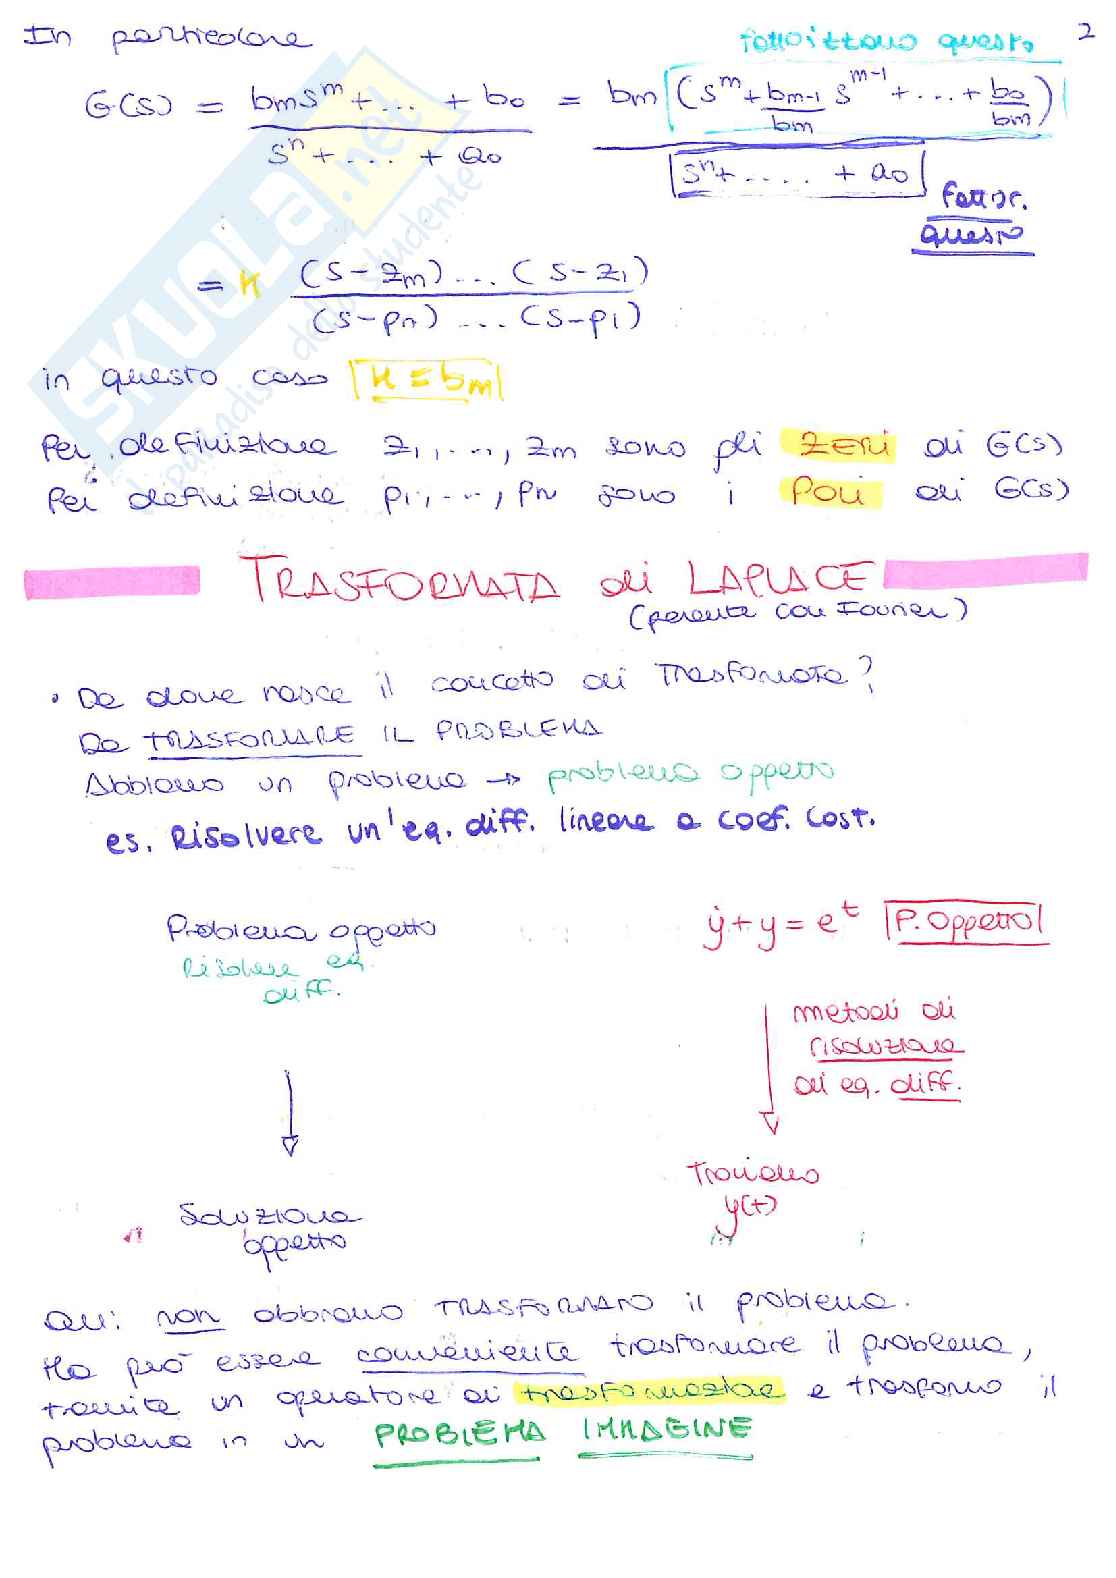 In particolare
fattorizziamo questo
2
G(s) = bm s^m + ... + b0 / s^n + ... + a0 = bm (s^m + bm-1/bm s^m-1 + ... + b0/bm) / s^n + .... + a0
fattor.
questo
= K (s-zm) ... (s-z1) / (s-pn) ... (s-p1)
in questo caso K = bm
Per definizione z1, ..., zm sono gli ZERI di G(s)
Per definizione p1, ..., pn sono i POLI di G(s)
TRASFORMATA di LAPLACE
(parente con Fourier)
• Da dove nasce il concetto di Trasformata?
Da TRASFORMARE IL PROBLEMA
Abbiamo un problema → problema oggetto
es. Risolvere un'eq. diff. lineare a coef. cost.
Problema oggetto
Risolvere eq.
diff.
ẏ + y = e^t P. Oggetto
metodi di
risoluzione
di eq. diff.
Troviamo
y(t)
Soluzione
oggetto
Qui non abbiamo TRASFORMATO il problema.
Ma può essere conveniente trasformare il problema,
tramite un operatore di trasformazione e trasformo il
problema in un PROBLEMA IMMAGINE
SKUOLA.net
il paradiso dello studente